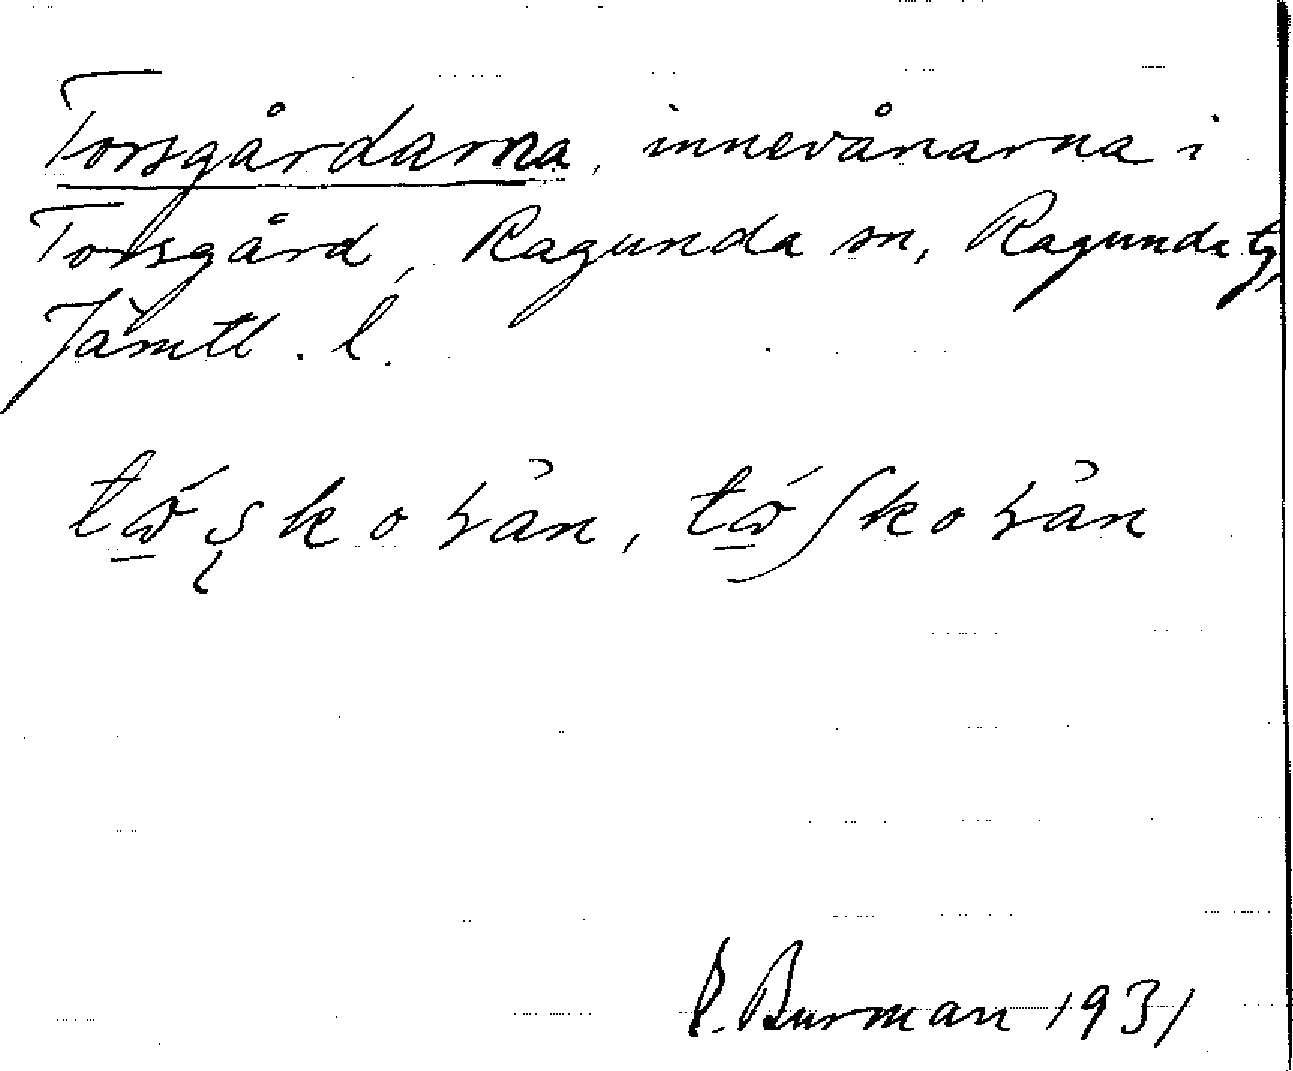 Torsgårdarna, innevånarna i
Torsgård, Ragunda sn, Ragunda tg,
Jämtl. l.
P. Burman 1931